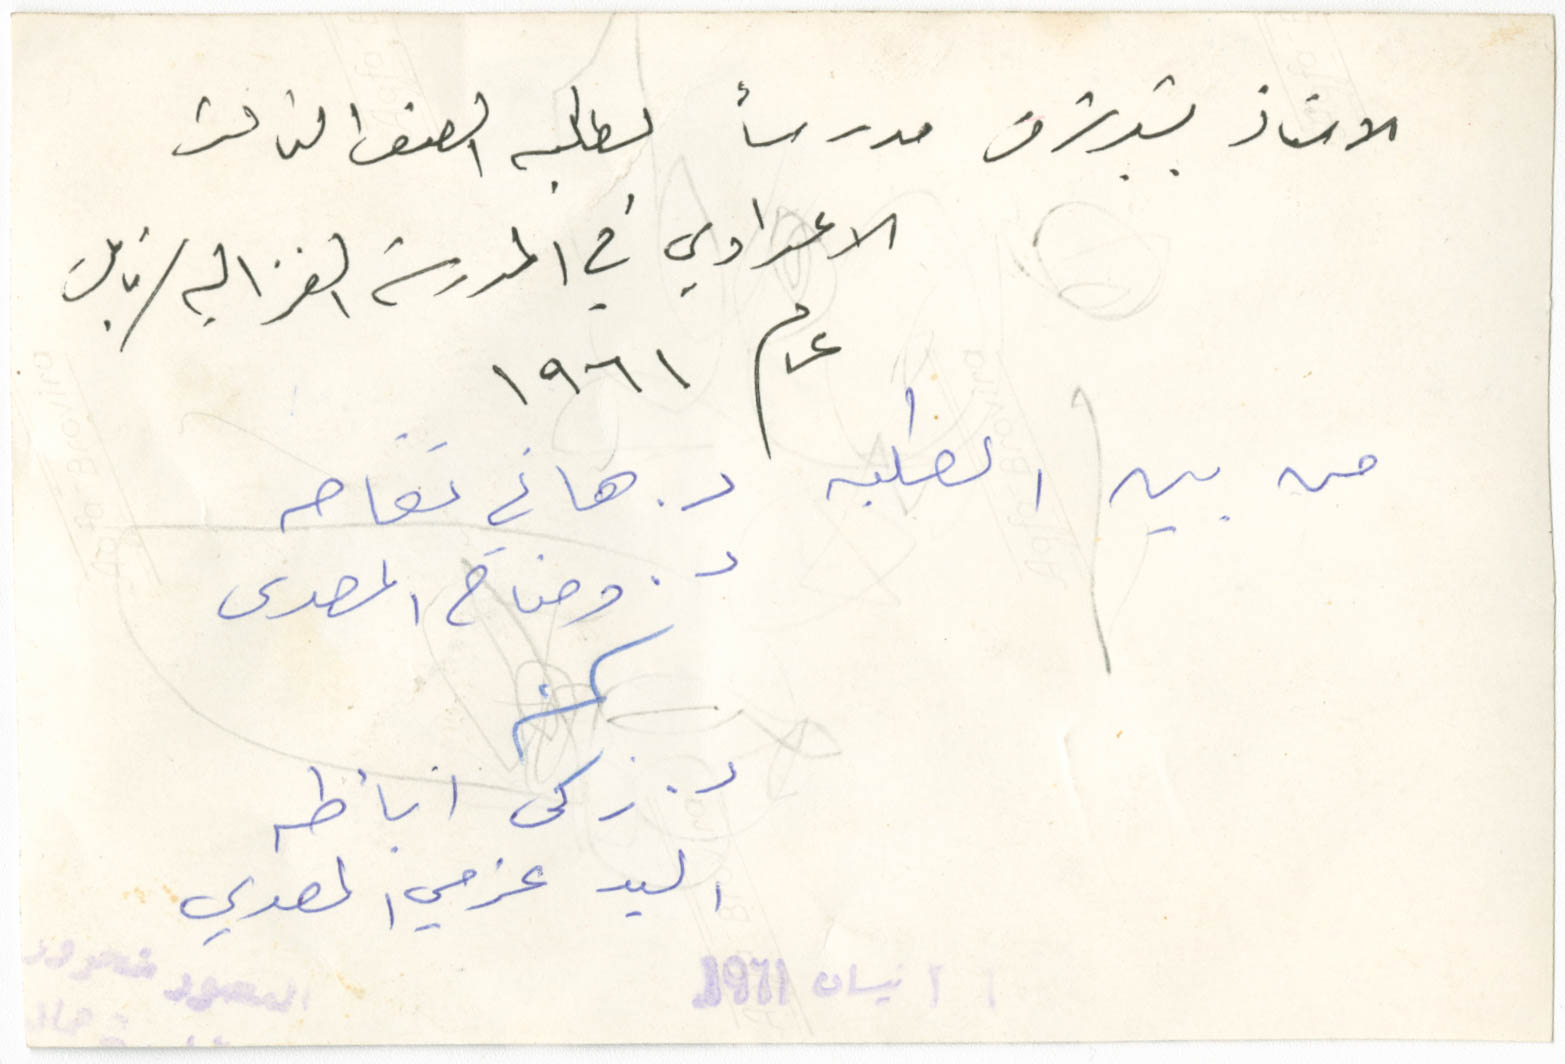 الاستاذ بشير شرف مدرساً لطلبه الصف الثالث
الاعدادي في المدرسة الغزاليه / نابلس
عام ١٩٦١
من بين الطلبه د. هاني تفاحه
د. وضاح المصري
د. زكي اباظه
السيد عزمي المصري
نيسان 1961
المصور
Agfa Brovira